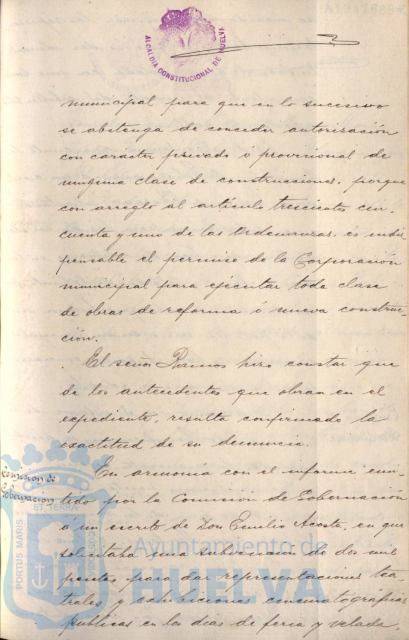 ALCALDIA CONSTITUCIONAL DE HUELVA
municipal para que en lo sucesivo
se abstenga de conceder autorización
con carácter privado ó provisional de
ninguna clase de construcciones, porque
con arreglo al artículo trescientos cin-
cuenta y uno de las Ordenanzas, es indis
pensable el permiso de la Corporación
municipal para ejecutar toda clase
de obras de reforma ó nueva construc-
ción.
El señor Ramos hizo constar que
de los antecedentes que obran en el
expediente, resulta confirmada la
exactitud de su denuncia.
Comisión de
Gobernación
En armonía con el informe emi-
tido por la Comisión de Gobernación
á un escrito de Don Emilio Acosta, en que
solicitaba una subvención de dos mil
pesetas para dar representaciones tea
trales y exhibiciones cinematográficas
públicas en los días de feria y velada,
PORTUS MARIS
ET TERRAE
CUSTODIA
Ayuntamiento de
HUELVA